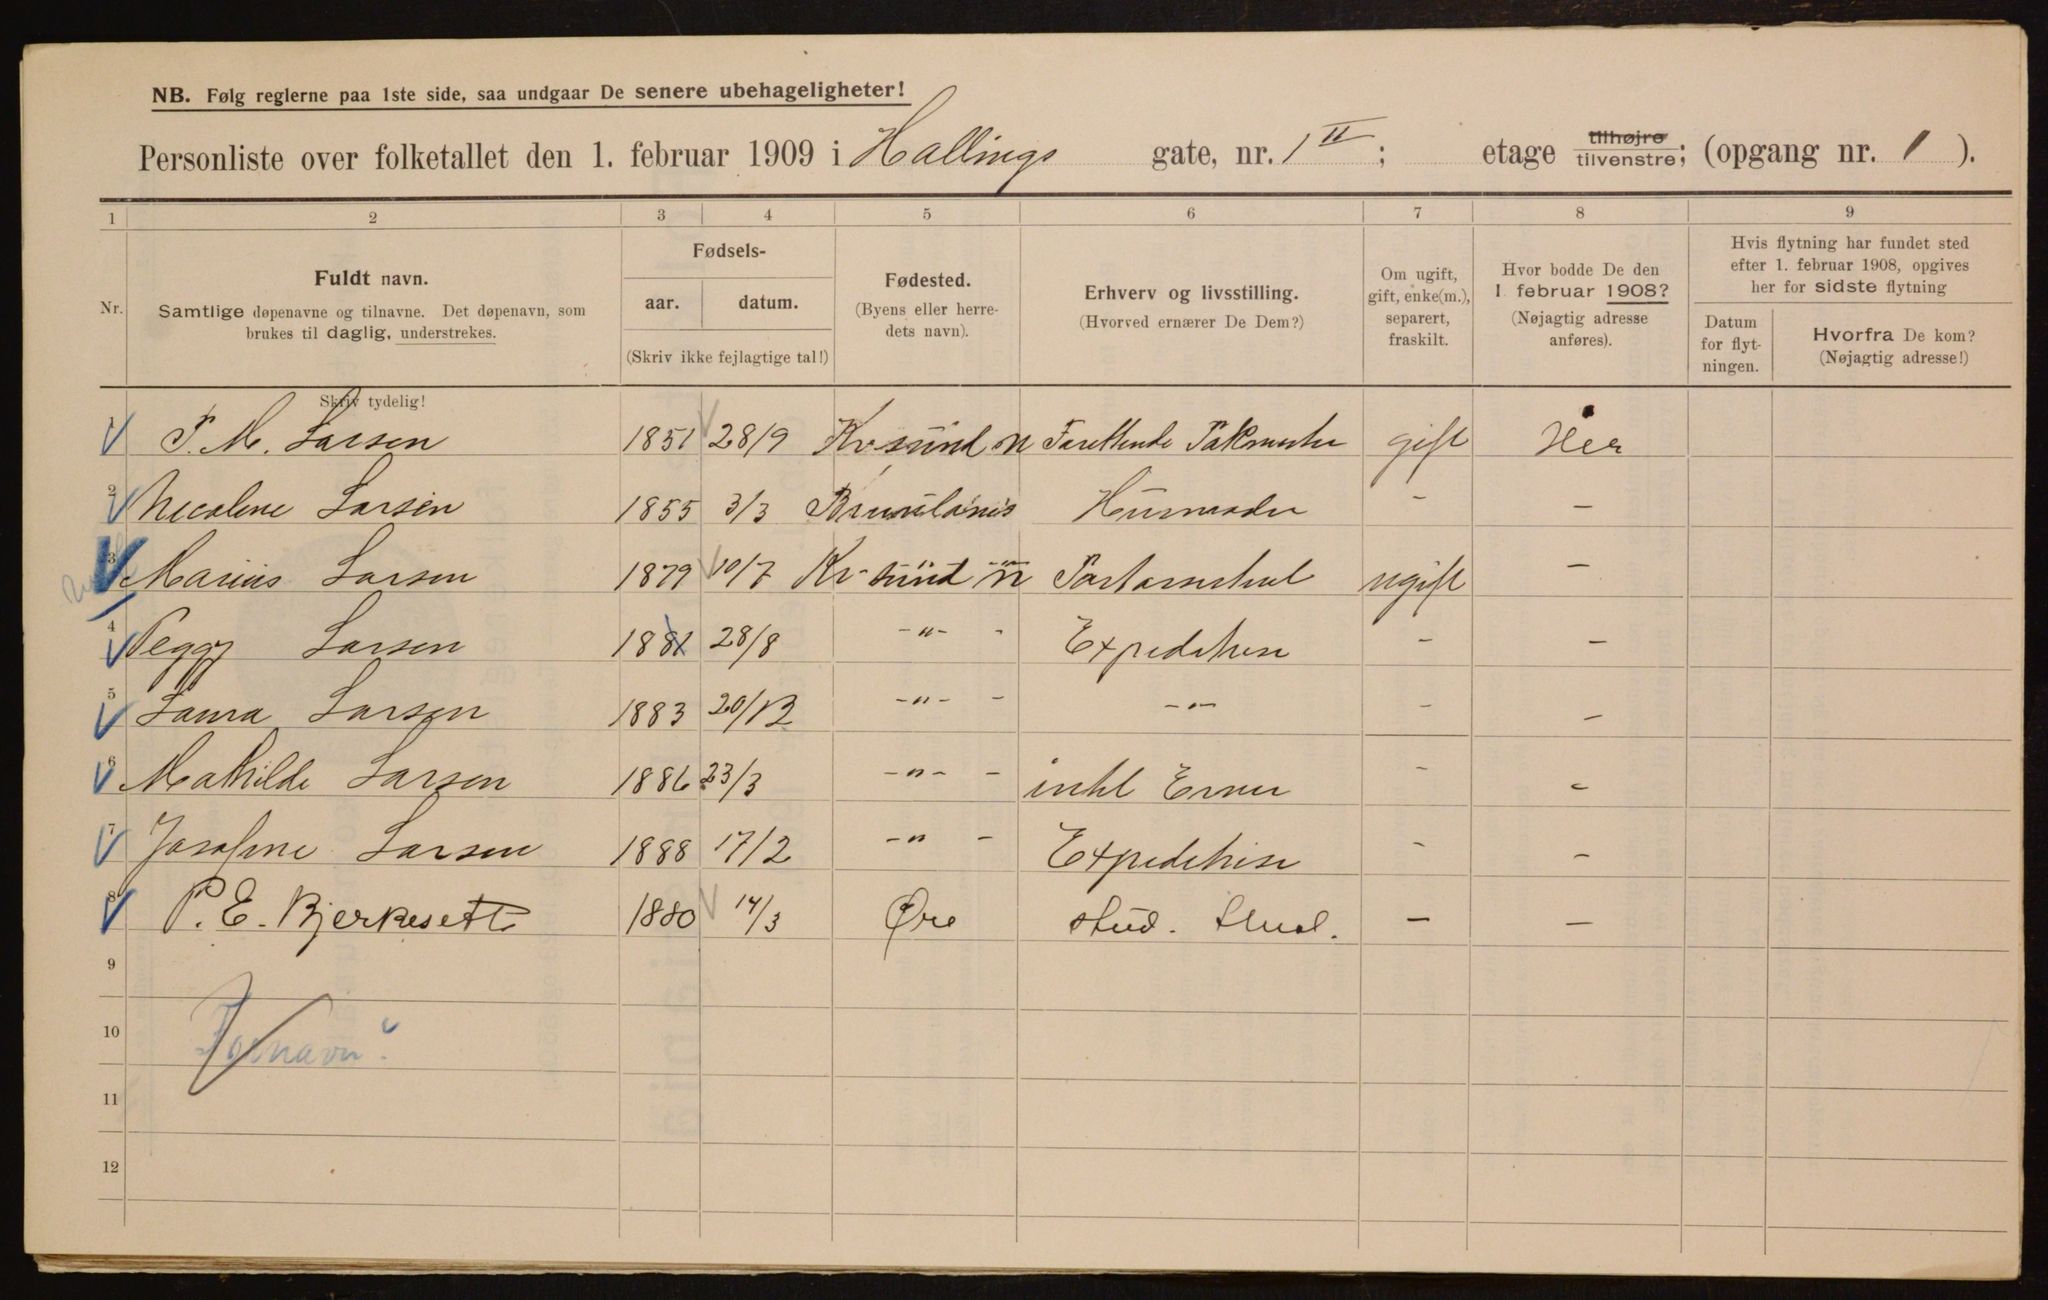 NB. Følg reglerne paa 1ste side, saa undgaar De senere ubehageligheter!
Personliste over folketallet den 1. februar 1909 i Hallings gate, nr. 1 II; etage tilhøjre tilvenstre; (opgang nr. 1).
1 2 3 4 5 6 7 8 9
Nr.
Fuldt navn.
Samtlige døpenavne og tilnavne. Det døpenavn, som
brukes til daglig, understrekes.
Fødsels-
aar. datum.
(Skriv ikke fejlagtige tal!)
Fødested.
(Byens eller herre-
dets navn).
Erhverv og livsstilling.
(Hvorved ernærer De Dem?)
Om ugift,
gift, enke(m.),
separert,
fraskilt.
Hvor bodde De den
1 februar 1908?
(Nøjagtig adresse
anføres).
Hvis flytning har fundet sted
efter 1. februar 1908, opgives
her for sidste flytning
Datum
for flyt-
ningen.
Hvorfra De kom?
(Nøjagtig adresse!)
Skriv tydelig!
1 P. M. Larsen 1851 28/9 Kr-sund n gift Her
2 Nicoline Larsen 1855 3/3 Brunlanes Husmoder - -
3 Marius Larsen 1879 10/7 Kr-sund n ugift -
4 Peggy Larsen 1881 28/8 -"- - Expeditrise - -
5 Laura Larsen 1883 20/12 -"- - -"- - -
6 Mathilde Larsen 1886 23/3 -"- - - -
7 Josefine Larsen 1888 17/2 -"- - Expeditrise - -
8 P. E. Bjerkeseth 1880 14/3 Øre stud. - -
9
10 Fornavn?
11
12